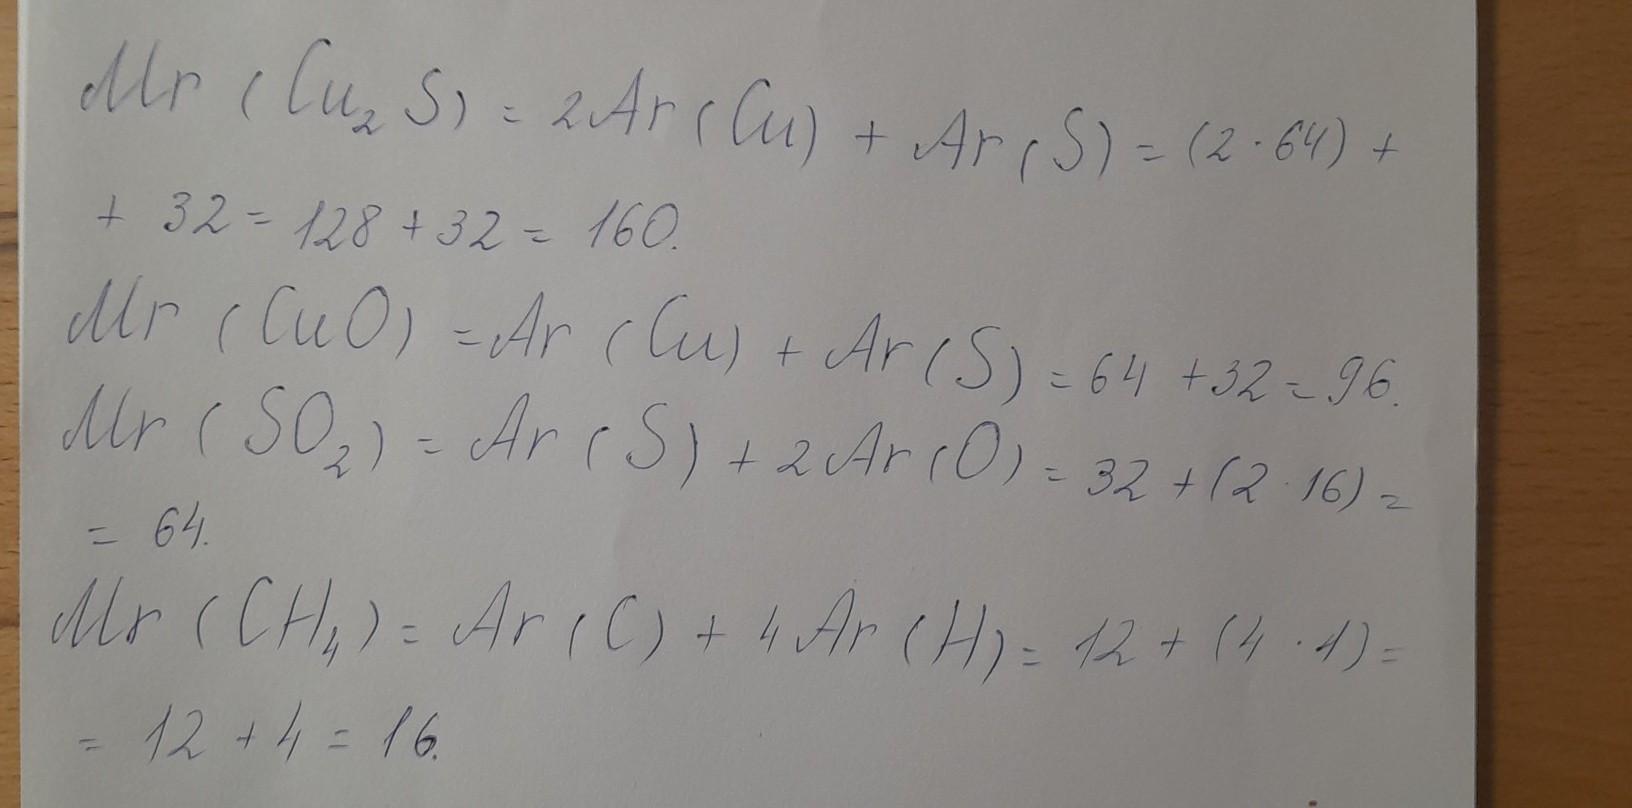 Mr (Cu₂S) = 2Ar (Cu) + Ar (S) = (2 · 64) +
+ 32 = 128 + 32 = 160.
Mr (CuO) = Ar (Cu) + Ar (S) = 64 + 32 = 96.
Mr (SO₂) = Ar (S) + 2Ar (O) = 32 + (2 · 16) =
= 64.
Mr (CH₄) = Ar (C) + 4Ar (H) = 12 + (4 · 1) =
= 12 + 4 = 16.